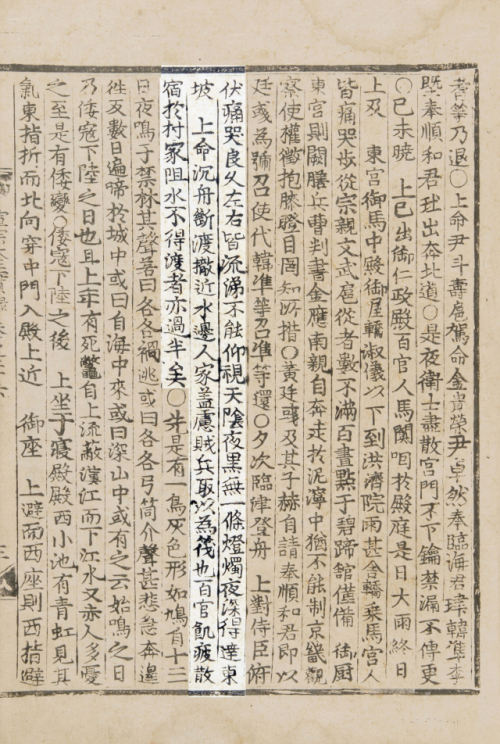 著華乃退○ 上命尹斗壽扈駕命金貴榮尹卓然奉臨海君韓準李
既奉順和君出奔北道○是夜衛士盡散宮門不下鑰禁漏不傳更
○己未曉 上已出御仁政殿百官人馬闐咽於殿庭是日大雨終日
上及 東宮御馬中殿御屋轎淑儀以下到洪濟院雨甚舍轎乘馬宮人
皆痛哭步從宗親文武扈從者數不滿百晝點于碧蹄館僅備 御厨
東宮則闕膳兵曹判書金應南親自奔走於泥濘中猶不能制京畿觀
察使權徵抱膝瞪目罔知所措○黃廷彧及其子赫自請奉順和君即以
廷彧為號召使代韓準華召準等還○夕次臨津登舟 上對侍臣俯
伏痛哭良久左右皆流涕不能仰視天陰夜黑無一條燈燭夜深得達東
坡 上命沉舟斷渡撤近水邊人家盖慮賊兵取以為筏也百官飢疲散
宿於村家阻水不得渡者亦過半矣○先是有一鳥灰色形如鳩有十三
日夜鳴于禁林其聲若曰各各禍逃或曰各各弓筒介聲甚悲急奔邊
徃反數日遍啼於城中或曰自海中來或曰深山中或有之云始鳴之日
乃倭寇下陸之日也且上年有死鱉自上流蔽漢江而下江水又赤人多憂
之至是有倭變○倭寇下陸之後 上坐于寢殿殿西小池有青虹見其
氣東指折而北向穿中門入殿上近 御座 上避而西座則西指避